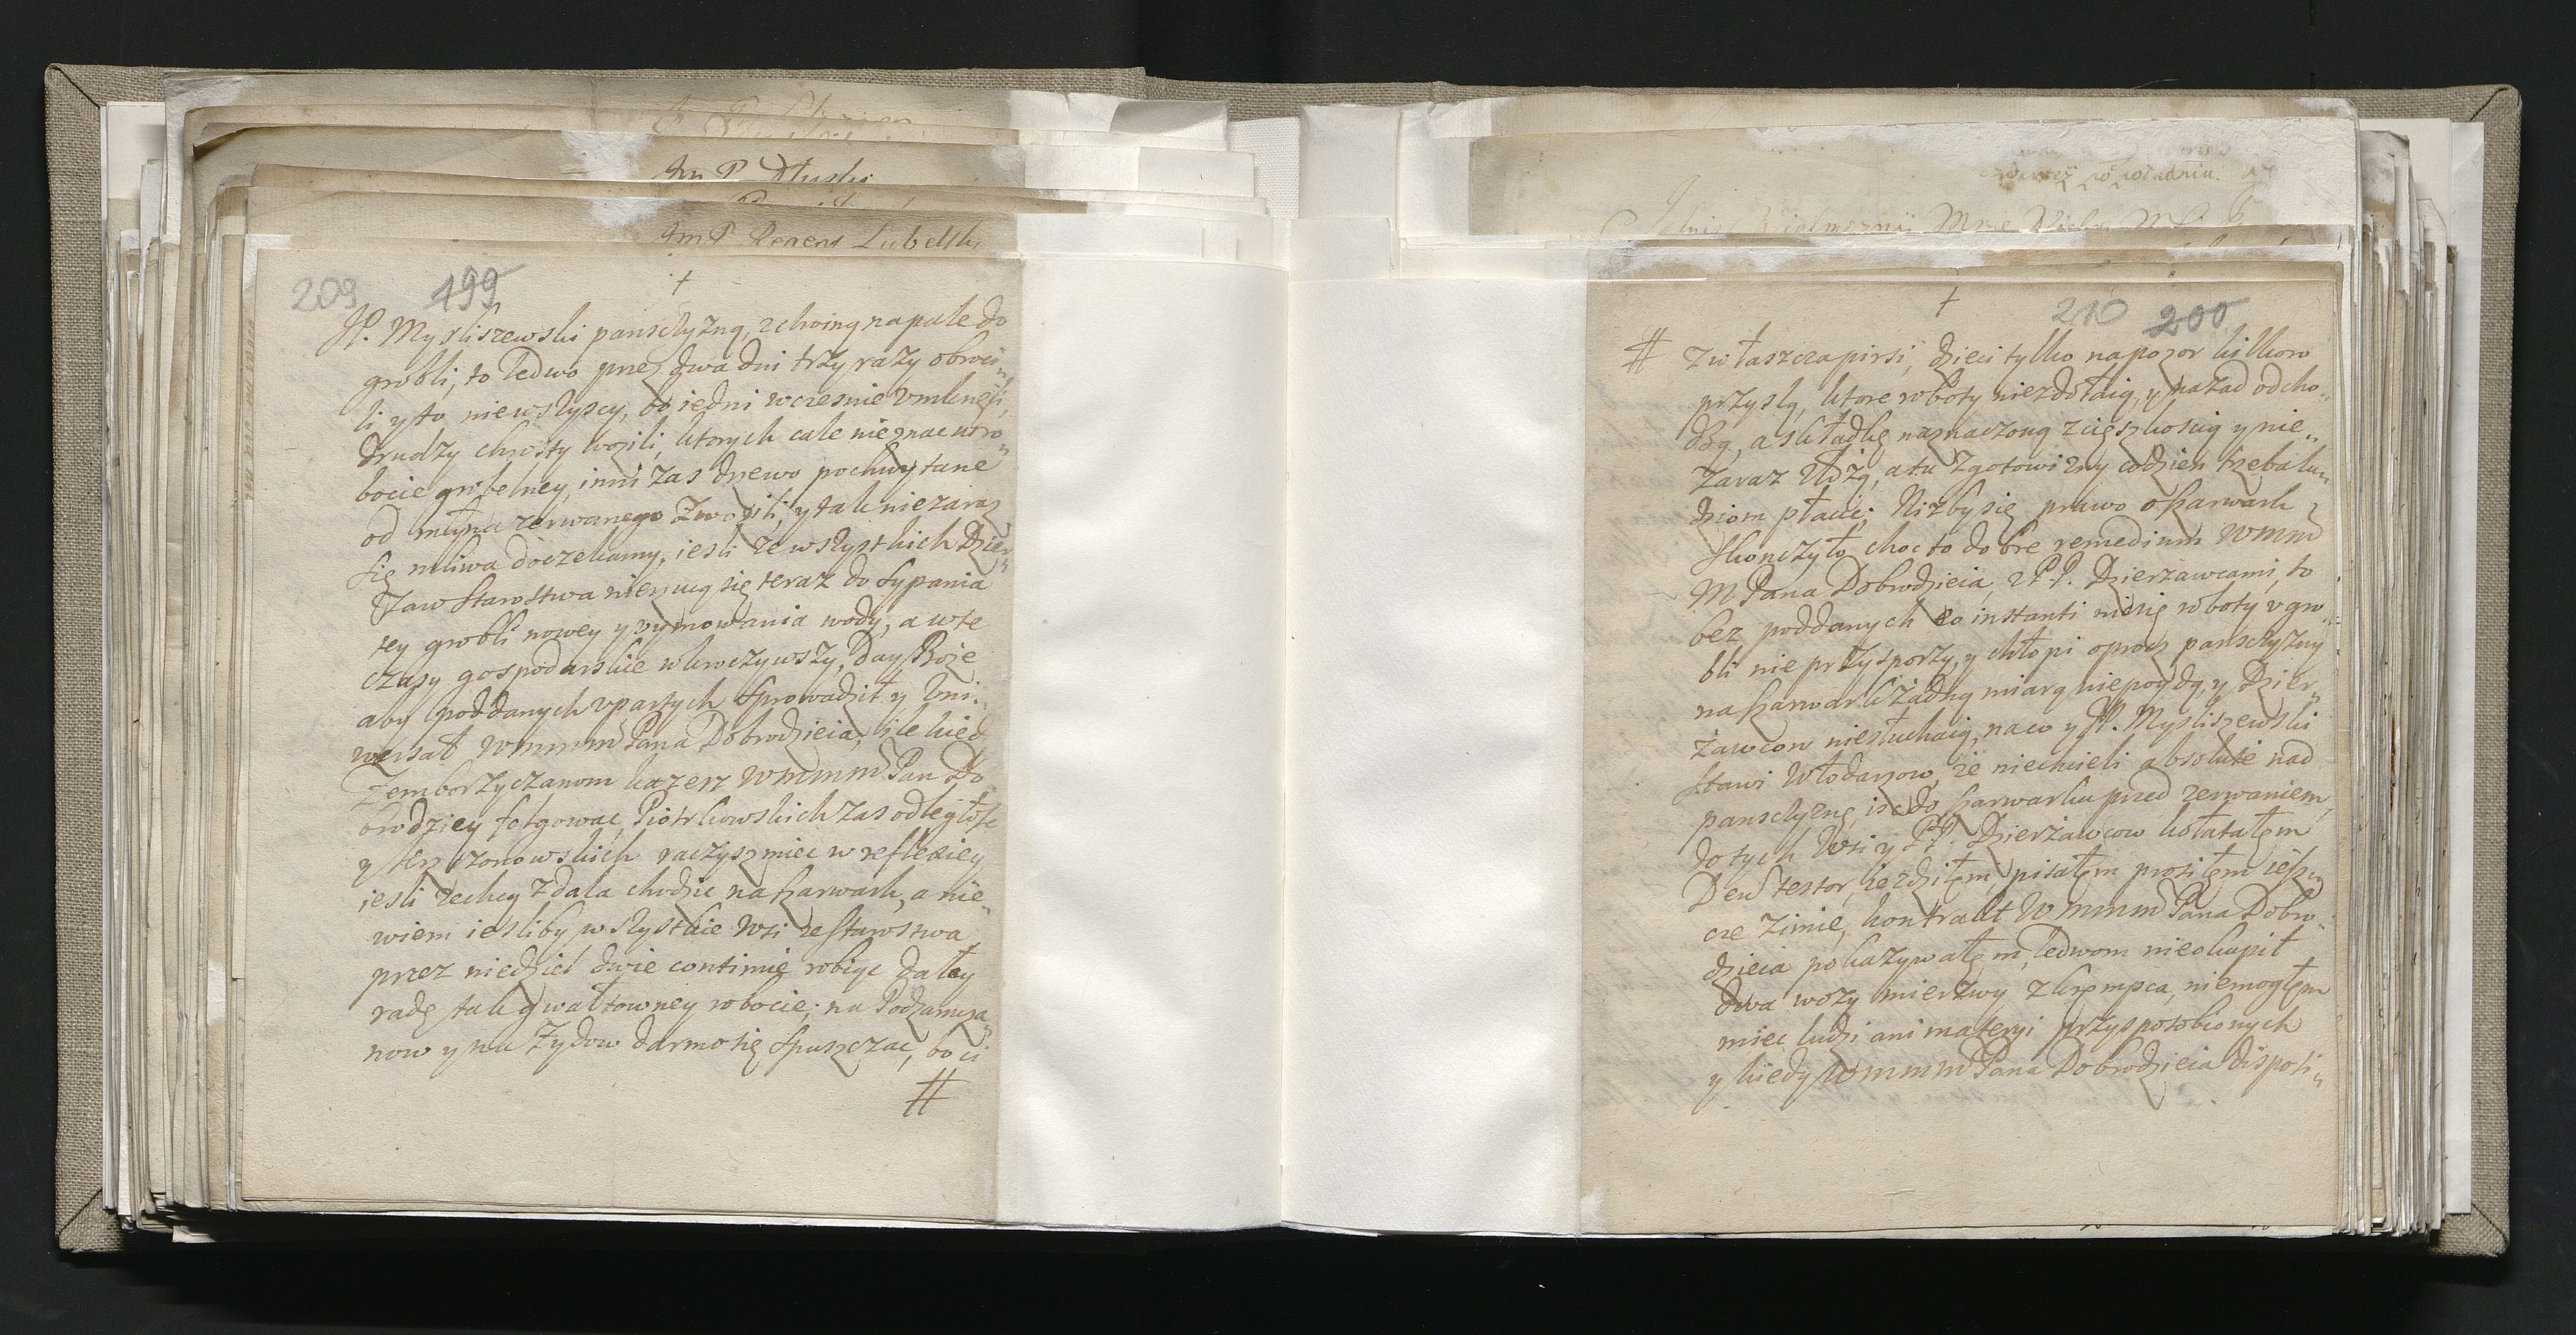 Im P Dłuski
Im P Regens Lubelski
209 199
+
JP. Mysliszewski panszczyzną, z choiny na pale do
grobli, to ledwo przez dwa dni trzy razy obroci„
li y to nie wszyscy, bo iedni wczesnie umknęli,
drudzy chrosty wozili, ktorych cale nie znac w ro„
bocie grobelney, inni zas drzewo pochwytane
od młyna zerwanego zwozili, y tak nie zaraz
się mliwa doczekamy, iesli ze wszystkich Dzier„
zaw Starostwa nie rzucą się teraz do sypania
tey grobli nowey y uymowania wody, a w te
czasy gospodarskie wkroczywszy, Day Boze
aby poddanych upartych sprowadził y Uni„
wersał WMMM Pana Dobrodzieia, ile kied
Zemborzyczanom kazesz WMMM Pan Do
brodziey folgowac, Piotrkowskich zas odległosc
y Krzczonowskich raczysz miec w reflexiey
iesli zechcą z dala chodzic na szarwark, a nie„
wiem iesliby wszystkie wsi ze starostwa
przez niedziel dwie continuè robiąc dały
radę tak gwałtowney robocie; na Podzamcza„
now y na Zydow darmo się spuszczac, bo ci
#
+
210 200
# zwłaszcza pirsi, dzieci tylko na pozor kilkoro
przyslą, ktore roboty niezdołaią, y nazad odcho„
dzą, a składkę naznaczoną z cięszkoscią y nie„
zaraz złożą, a tu z gotowizny codzien trzeba lu„
dziom płacic; Nizby się prawo o szarwark
skonczyło, choc to dobre remedium WMM
M Pana Dobrodzieia, z PP. Dzierzawcami, to
bez poddanych ex instanti nicsię roboty u gro„
bli nie przysporzy, y chłopi oprocz panszczyzny
na szarwark żadną miarą niepoydą, y Dzier„
żawcow niesłuchaią, na co y JP. Mysliszewski
stawi Włodarzow, że niechcieli absolutè nad
panszczyznę isc do szarwarku przed zerwaniem,
do tych Wsi y PP. Dzierżawcow kołatałęm
Deũ testor, iezdziłęm, pisałęm prosiłęm ięszcz
cze zimie, kontrakt WMMM Pana Dobro„
dzieia pokazywałęm, ledwom nie okupił
dwa wozy mierzwy z Krępca, niemogłęm
miec ludzi ani materyi przysposobionych
y kiedy WMMM Pana Dobrodzieia dispozi„